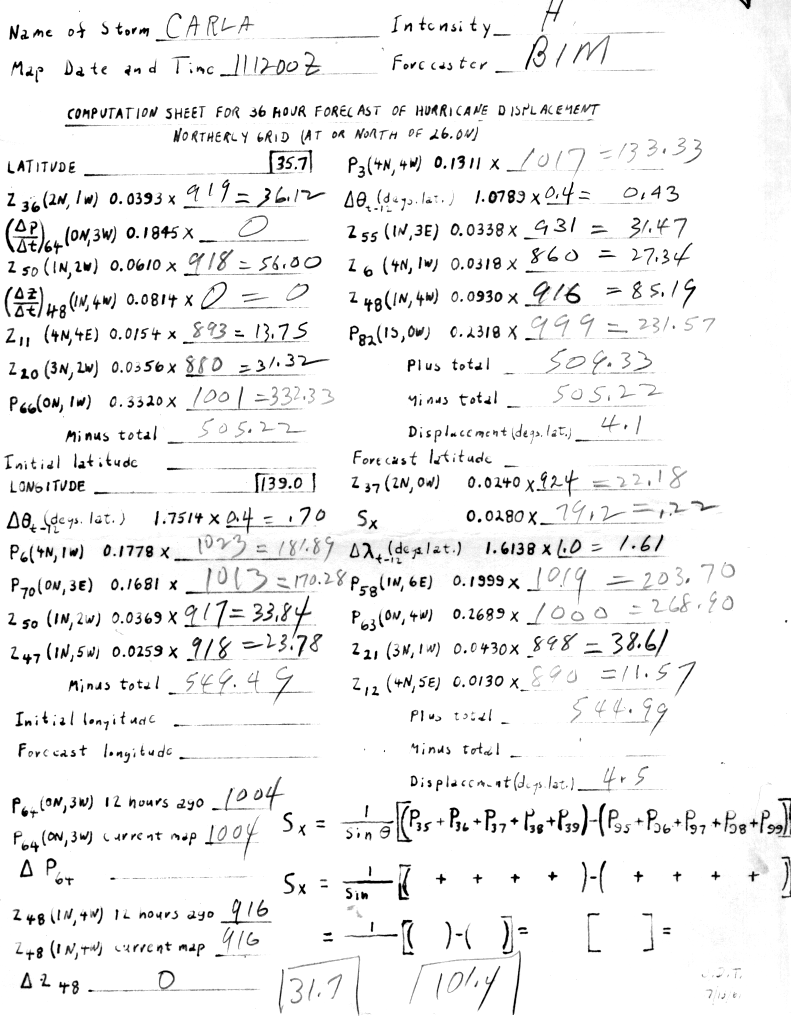 Name of Storm CARLA Intensity H
Map Date and Time 111200Z Forecaster BIM
COMPUTATION SHEET FOR 36 HOUR FORECAST OF HURRICANE DISPLACEMENT
NORTHERLY GRID (AT OR NORTH OF 26.0N)
LATITUDE 35.7
Z36 (2N, 1W) 0.0393 x 919 = 36.12
(ΔP/Δt)64 (0N, 3W) 0.1845 x 0
Z50 (1N, 2W) 0.0610 x 918 = 56.00
(ΔZ/Δt)48 (1N, 4W) 0.0814 x 0 = 0
Z11 (4N, 4E) 0.0154 x 893 = 13.75
Z20 (3N, 2W) 0.0356 x 880 = 31.32
P66 (0N, 1W) 0.3320 x 1001 = 332.33
Minus total 505.22
Initial latitude
P3 (4N, 4W) 0.1311 x 1017 = 133.33
Δθt-12 (degs. lat.) 1.0789 x 0.4 = 0.43
Z55 (1N, 3E) 0.0338 x 931 = 31.47
Z6 (4N, 1W) 0.0318 x 860 = 27.34
Z48 (1N, 4W) 0.0930 x 916 = 85.19
P82 (1S, 0W) 0.2318 x 999 = 231.57
Plus total 509.33
Minus total 505.22
Displacement (degs. lat.) 4.1
Forecast latitude
LONGITUDE 139.0
Δθt-12 (degs. lat.) 1.7514 x 0.4 = .70
P6 (4N, 1W) 0.1778 x 1023 = 181.89
P70 (0N, 3E) 0.1681 x 1013 = 170.28
Z50 (1N, 2W) 0.0369 x 917 = 33.84
Z47 (1N, 5W) 0.0259 x 918 = 23.78
Minus total 549.49
Initial longitude
Forecast longitude
Z37 (2N, 0W) 0.0240 x 924 = 22.18
Sx 0.0280 x 79.2 = .22
Δλt-12 (degs lat.) 1.6138 x 1.0 = 1.61
P58 (1N, 6E) 0.1999 x 1019 = 203.70
P63 (0N, 4W) 0.2689 x 1000 = 268.90
Z21 (3N, 1W) 0.0430 x 898 = 38.61
Z12 (4N, 5E) 0.0130 x 890 = 11.57
Plus total 544.99
Minus total
Displacement (degs. lat.) 4.5
P64 (0N, 3W) 12 hours ago 1004
P64 (0N, 3W) current map 1004
Δ P64
Z48 (1N, 4W) 12 hours ago 916
Z48 (1N, 4W) current map 916
Δ Z48 0
Sx = 1/Sin θ [(P35 + P36 + P37 + P38 + P39) - (P95 + P96 + P97 + P98 + P99)]
Sx = 1/Sin [( + + + + ) - ( + + + + )]
= 1/ [( ) - ( )] = [ ] =
31.7 101.4